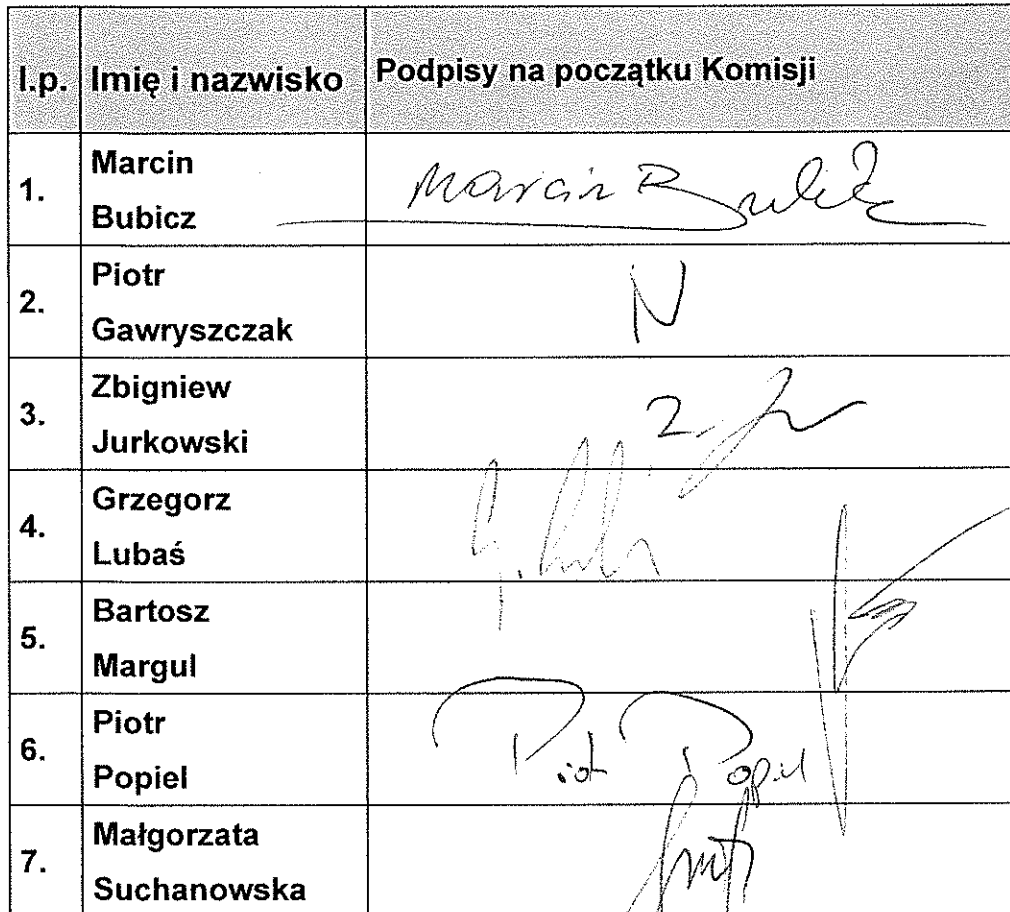 l.p. Imię i nazwisko Podpisy na początku Komisji
1. Marcin Bubicz Marcin Bubicz
2. Piotr Gawryszczak N
3. Zbigniew Jurkowski
4. Grzegorz Lubaś
5. Bartosz Margul
6. Piotr Popiel Piotr Popiel
7. Małgorzata Suchanowska